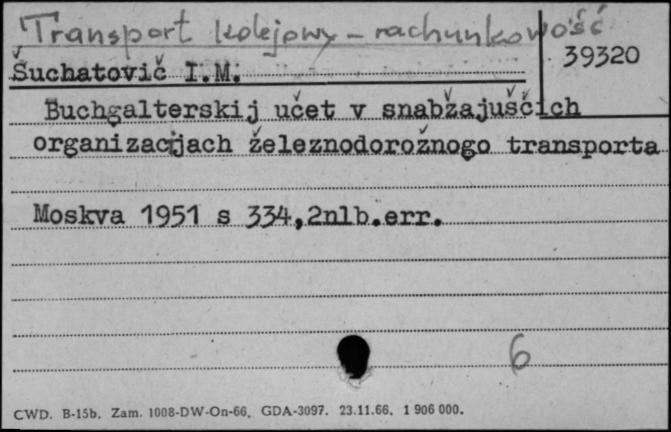 Transport kolejowy - rachunkowość
39320
Šuchatovič I.M.
Buchgalterskij učet v snabžajuščich
organizacijach železnodorožnogo transporta
Moskva 1951 s 334,2nlb.err.
6
CWD. B-15b. Zam. 1008-DW-On-66. GDA-3097. 23.11.66. 1 906 000.